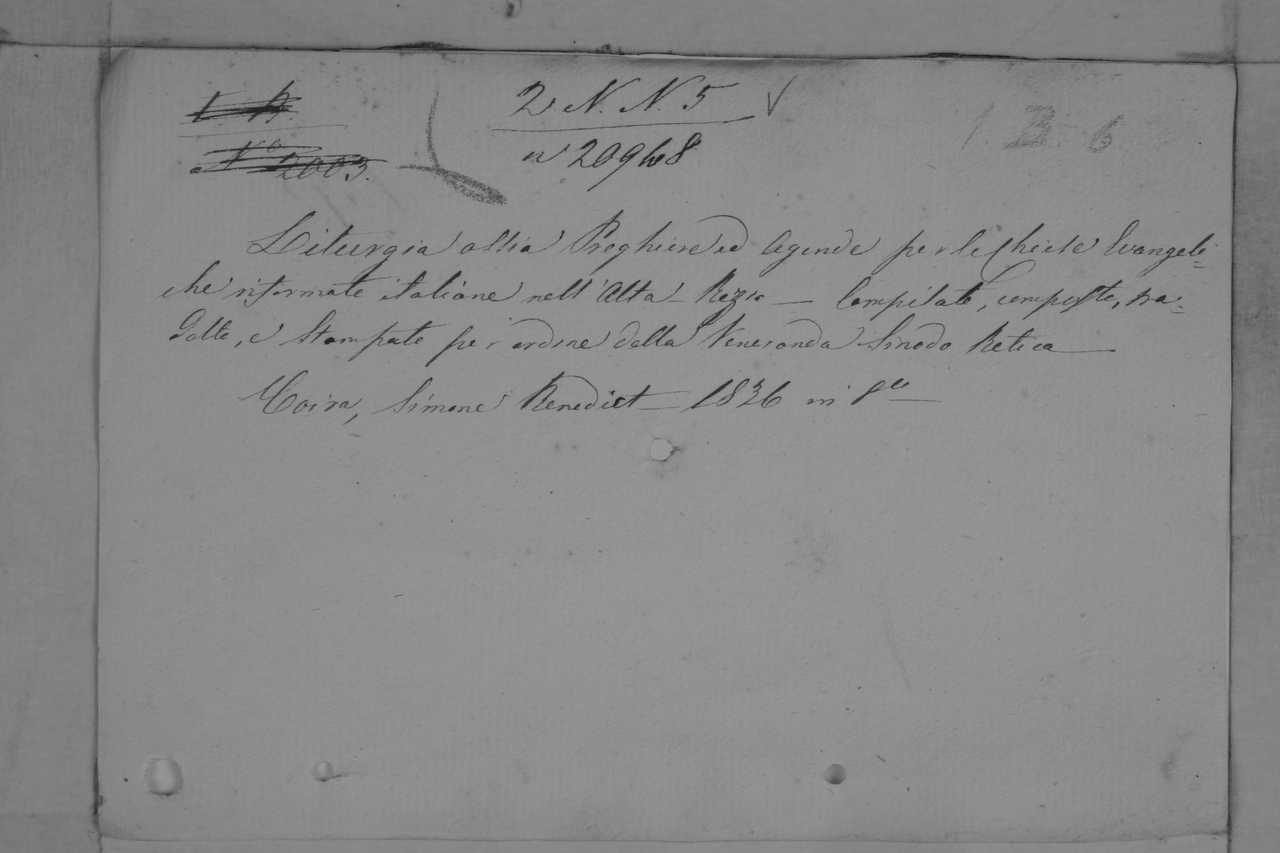 1 h.
2 N. N. 5
1. B. 6
N.o 2003.
n 20968
Liturgia ossia Preghiere ed Agende per le Chiese Evangeli=
che riformate italiane nell'Alta-Rezia — Compilate, composte, tra=
dotte, e Stampate per ordine della Veneranda Sinodo Retica —
Coira, Simone Benedict — 1836 in 8.o —